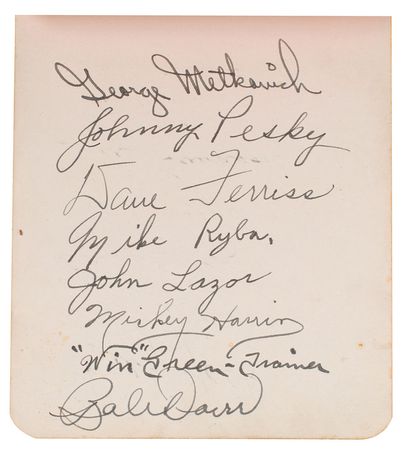 George Metkovich
Johnny Pesky
Dave Ferriss
Mike Ryba.
John Lazor
Mickey Harris
"Win" Green - Trainer
Bob Doerr